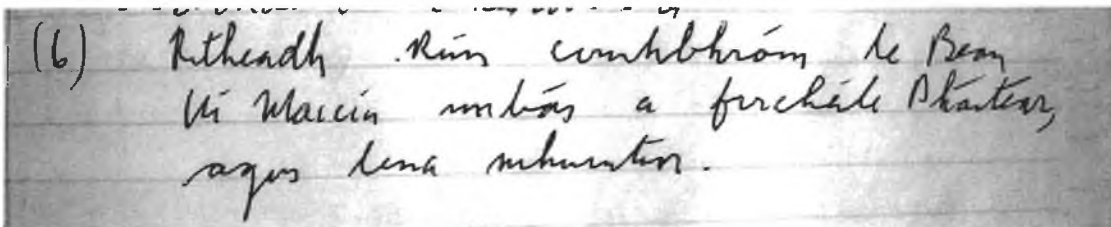 (6) Ritheadh Rún comhbhróin le Bean
Uí Maicín a firchéile
agus lena mhuintir.